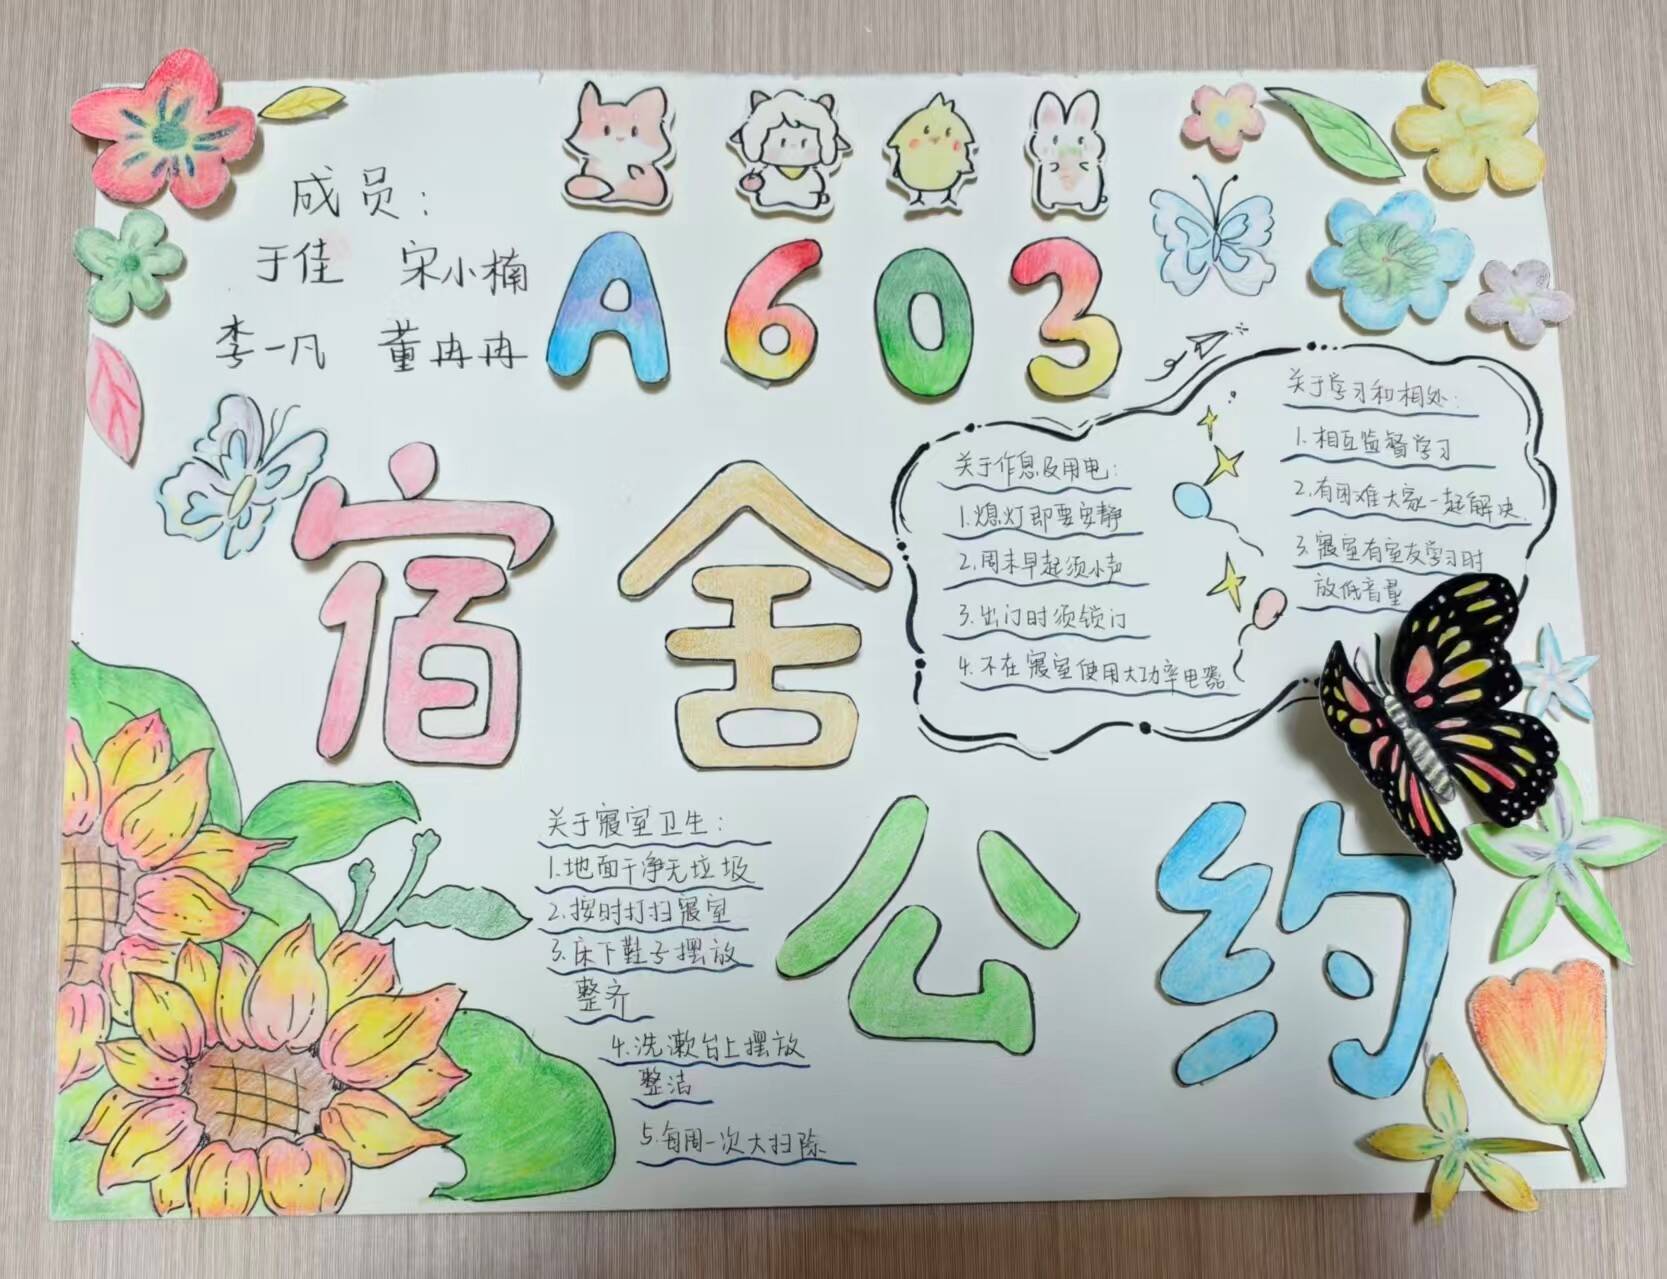 成员：
于佳 宋小楠
李一凡 董冉冉
A603
宿舍
公约
关于作息及用电：
1.熄灯即要安静
2.周末早起须小声
3.出门时须锁门
4.不在寝室使用大功率电器
关于学习和相处：
1.相互监督学习
2.有困难大家一起解决
3.寝室有室友学习时
放低音量
关于寝室卫生：
1.地面干净无垃圾
2.按时打扫寝室
3.床下鞋子摆放
整齐
4.洗漱台上摆放
整洁
5.每周一次大扫除